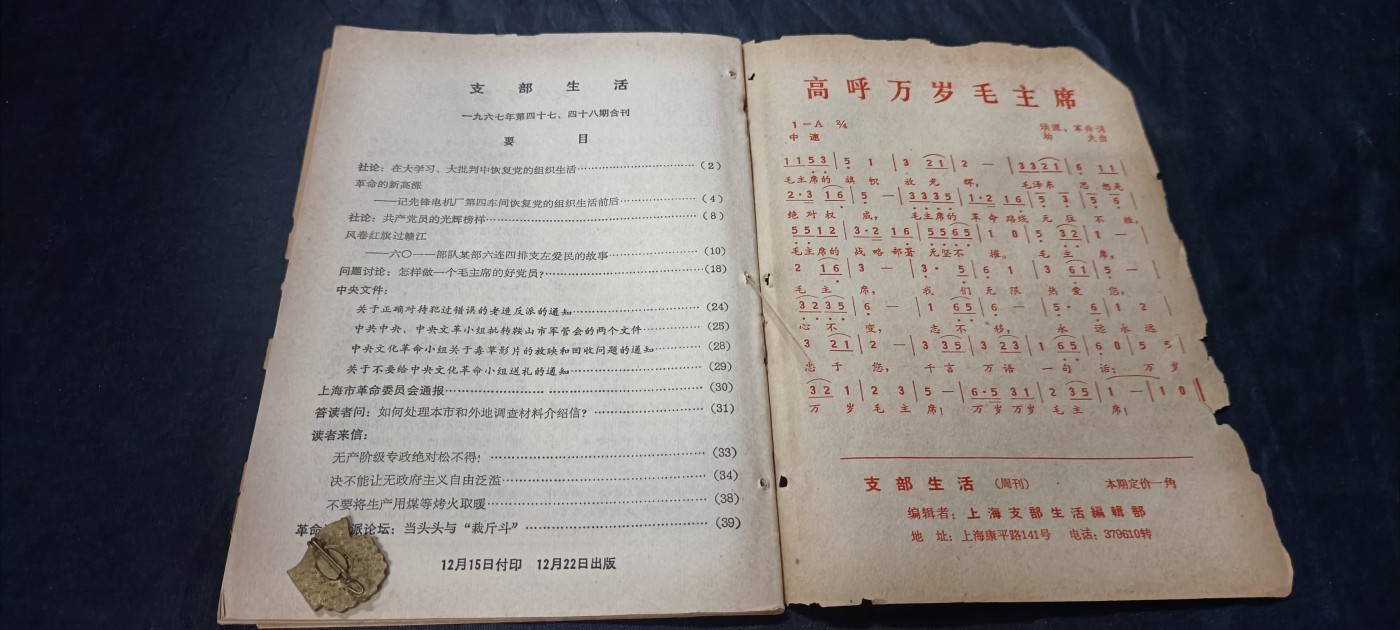 支部生活
一九六七年第四十七、四十八期合刊
要目
社论：在大学习、大批判中恢复党的组织生活……（2）
革命的新高涨
——记先锋电机厂第四车间恢复党的组织生活前后……（4）
社论：共产党员的光辉榜样……（8）
风卷红旗过赣江
——六〇一一部队某部六连四排支左爱民的故事……（10）
问题讨论：怎样做一个毛主席的好党员？……（18）
中央文件：
关于正确对待犯过错误的老造反派的通知……（24）
中共中央、中央文革小组批转鞍山市军管会的两个文件……（25）
中央文化革命小组关于毒草影片的放映和回收问题的通知……（28）
关于不要给中央文化革命小组送礼的通知……（29）
上海市革命委员会通报……（30）
答读者问：如何处理本市和外地调查材料介绍信？……（31）
读者来信：
无产阶级专政绝对松不得！……（33）
决不能让无政府主义自由泛滥……（34）
不要将生产用煤等烤火取暖……（38）
革命 派论坛：当头头与“栽斤斗”……（39）
12月15日付印 12月22日出版
高呼万岁毛主席
1＝A 2/4
中速
1 1 5 3 | 5 1 | 3 2 1 | 2 — | 3 3 2 1 | 6 1 1 |
毛主席的 旗帜 放光辉， 毛泽东 思想是
2·3 1 6 | 5 — | 3 3 3 5 | 1·2 1 6 | 5 3 | 5 6 |
绝对权威， 毛主席的 革命路线 无往不胜，
5 5 1 2 | 3·2 1 6 | 5 5 6 5 | 1 0 | 5 3 2 | 1 — |
毛主席的 战略部署 无坚不摧。 毛主席，
2 1 6 | 3 — | 3· 5 | 6 1 | 3 6 1 | 5 — |
毛主席， 我们无限热爱您，
3 2 3 5 | 6 — | 1 6 5 | 6 — | 5· 6 | 1 2 |
心不变， 志不移， 永远永远
3 2 1 | 2 — | 3 3 5 | 3 2 3 | 1 6 5 | 6 0 5 5 |
忠于您， 千言万语一句话：万岁
3 2 1 | 2 3 | 5 — | 6·5 3 1 | 2 3 5 | 1 — | 1 0 ‖
万岁毛主席！ 万岁万岁毛主席！
支部生活（周刊） 本期定价一角
编辑者：上海支部生活编辑部
地址：上海康平路141号 电话：379610转